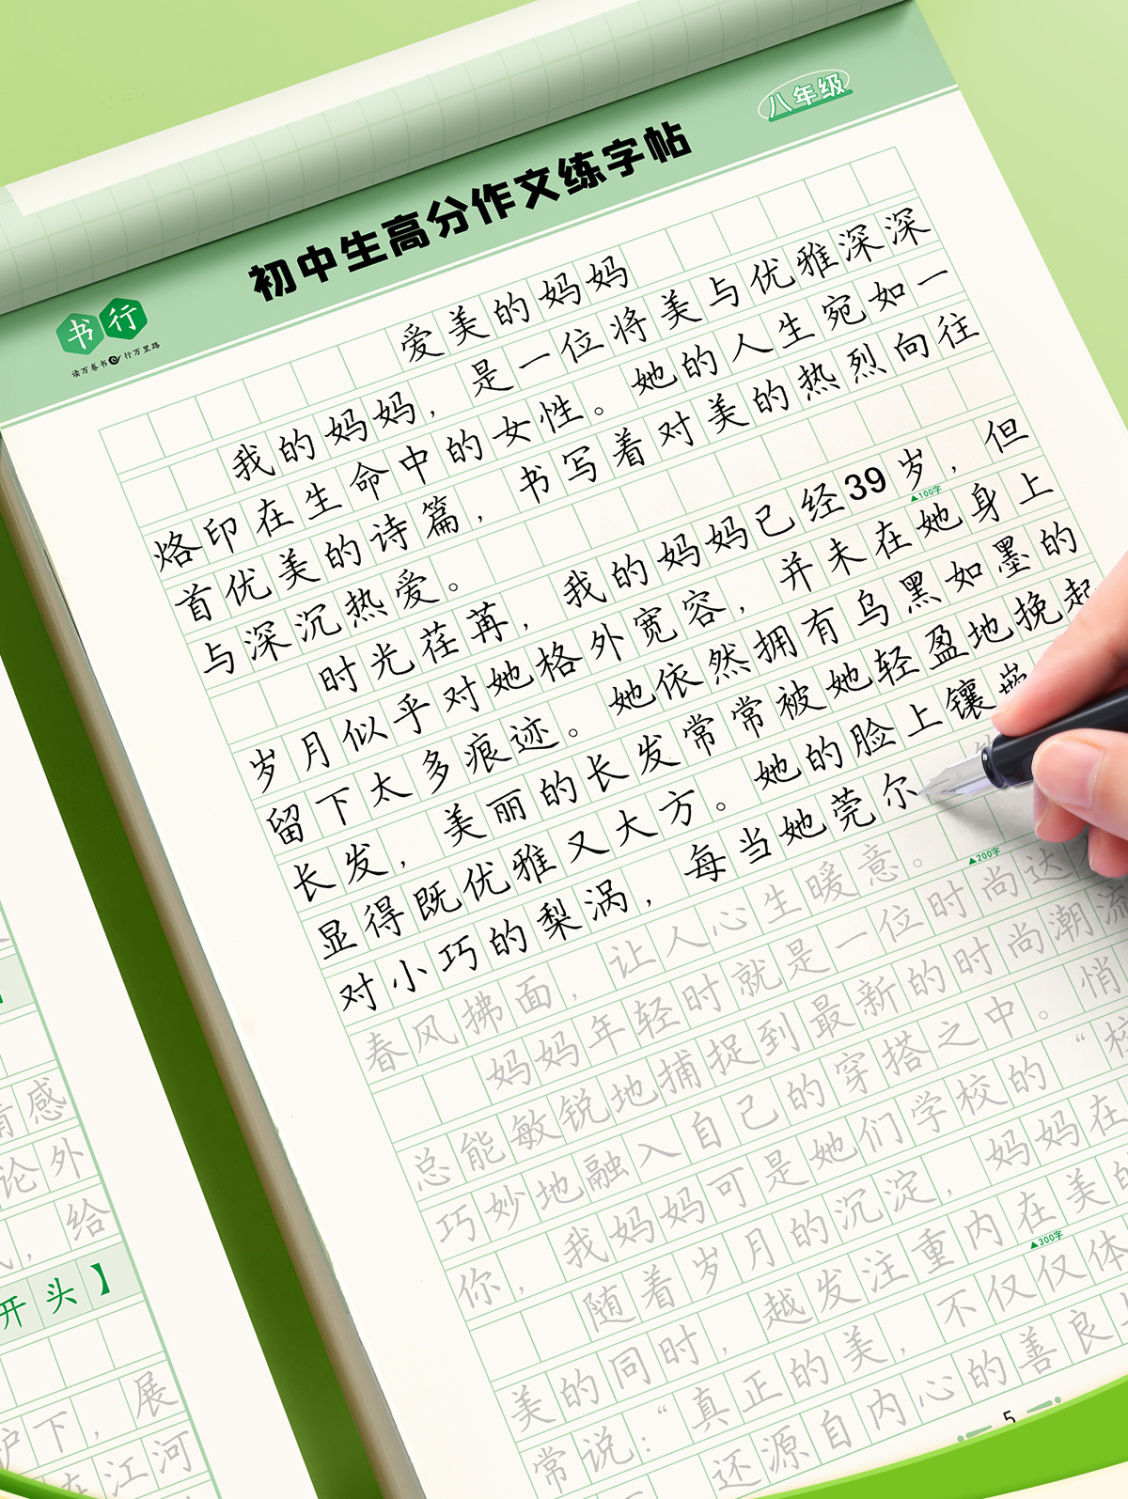 八年级
初中生高分作文练字帖
书行
读万卷书 行万里路
爱美的妈妈
我的妈妈，是一位将美与优雅深深
烙印在生命中的女性。她的人生宛如一
首优美的诗篇，书写着对美的热烈向往
与深沉热爱。
时光荏苒，我的妈妈已经39岁，但
▲100字
岁月似乎对她格外宽容，并未在她身上
留下太多痕迹。她依然拥有乌黑如墨的
长发，美丽的长发常常被她轻盈地挽起
显得既优雅又大方。她的脸上镶嵌
对小巧的梨涡，每当她莞尔
▲200字
春风拂面，让人心生暖意。
妈妈年轻时就是一位时尚达
总能敏锐地捕捉到最新的时尚潮流
巧妙地融入自己的穿搭之中。悄
你，我妈妈可是她们学校的“校
随着岁月的沉淀，妈妈在
▲300字
美的同时，越发注重内在美的
常说：“真正的美，不仅仅体
还源自内心的善良与
5
情感
论外
，给
开头】
展
护下，
在江河